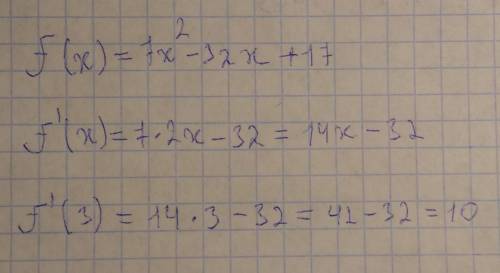 f(x) = 7x² - 32x + 17
f'(x) = 7·2x - 32 = 14x - 32
f'(3) = 14·3 - 32 = 42 - 32 = 10